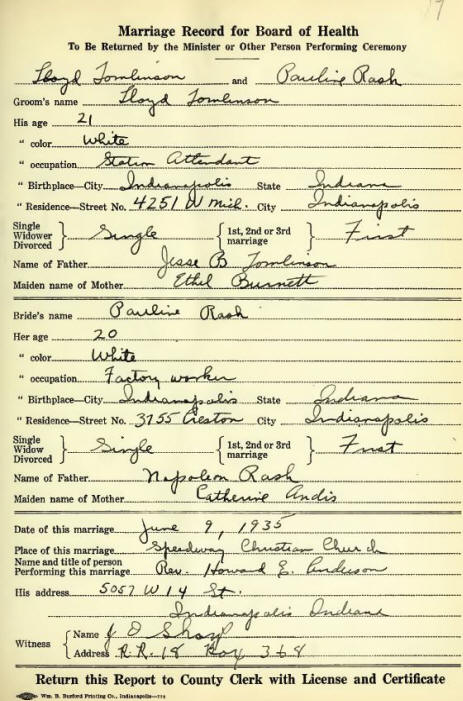 Marriage Record for Board of Health
To Be Returned by the Minister or Other Person Performing Ceremony
Lloyd Tomlinson and Pauline Rash
Groom's name Lloyd Tomlinson
His age 21
" color White
" occupation Station Attendant
" Birthplace—City Indianapolis State Indiana
" Residence—Street No. 4251 W Mich. City Indianapolis
Single Widower Divorced } Single { 1st, 2nd or 3rd marriage } First
Name of Father Jesse B Tomlinson
Maiden name of Mother Ethel Burnett
Bride's name Pauline Rash
Her age 20
" color White
" occupation Factory worker
" Birthplace—City Indianapolis State Indiana
" Residence—Street No. 3755 Creston City Indianapolis
Single Widow Divorced } Single { 1st, 2nd or 3rd marriage } First
Name of Father Napoleon Rash
Maiden name of Mother Catherine Andis
Date of this marriage June 9, 1935
Place of this marriage Speedway Christian Church
Name and title of person Performing this marriage Rev. Howard E. Anderson
His address 5057 W 14 St.
Indianapolis Indiana
Witness { Name J D Sharp
Address R.R. 18 Box 368
Return this Report to County Clerk with License and Certificate
Wm. B. Burford Printing Co., Indianapolis